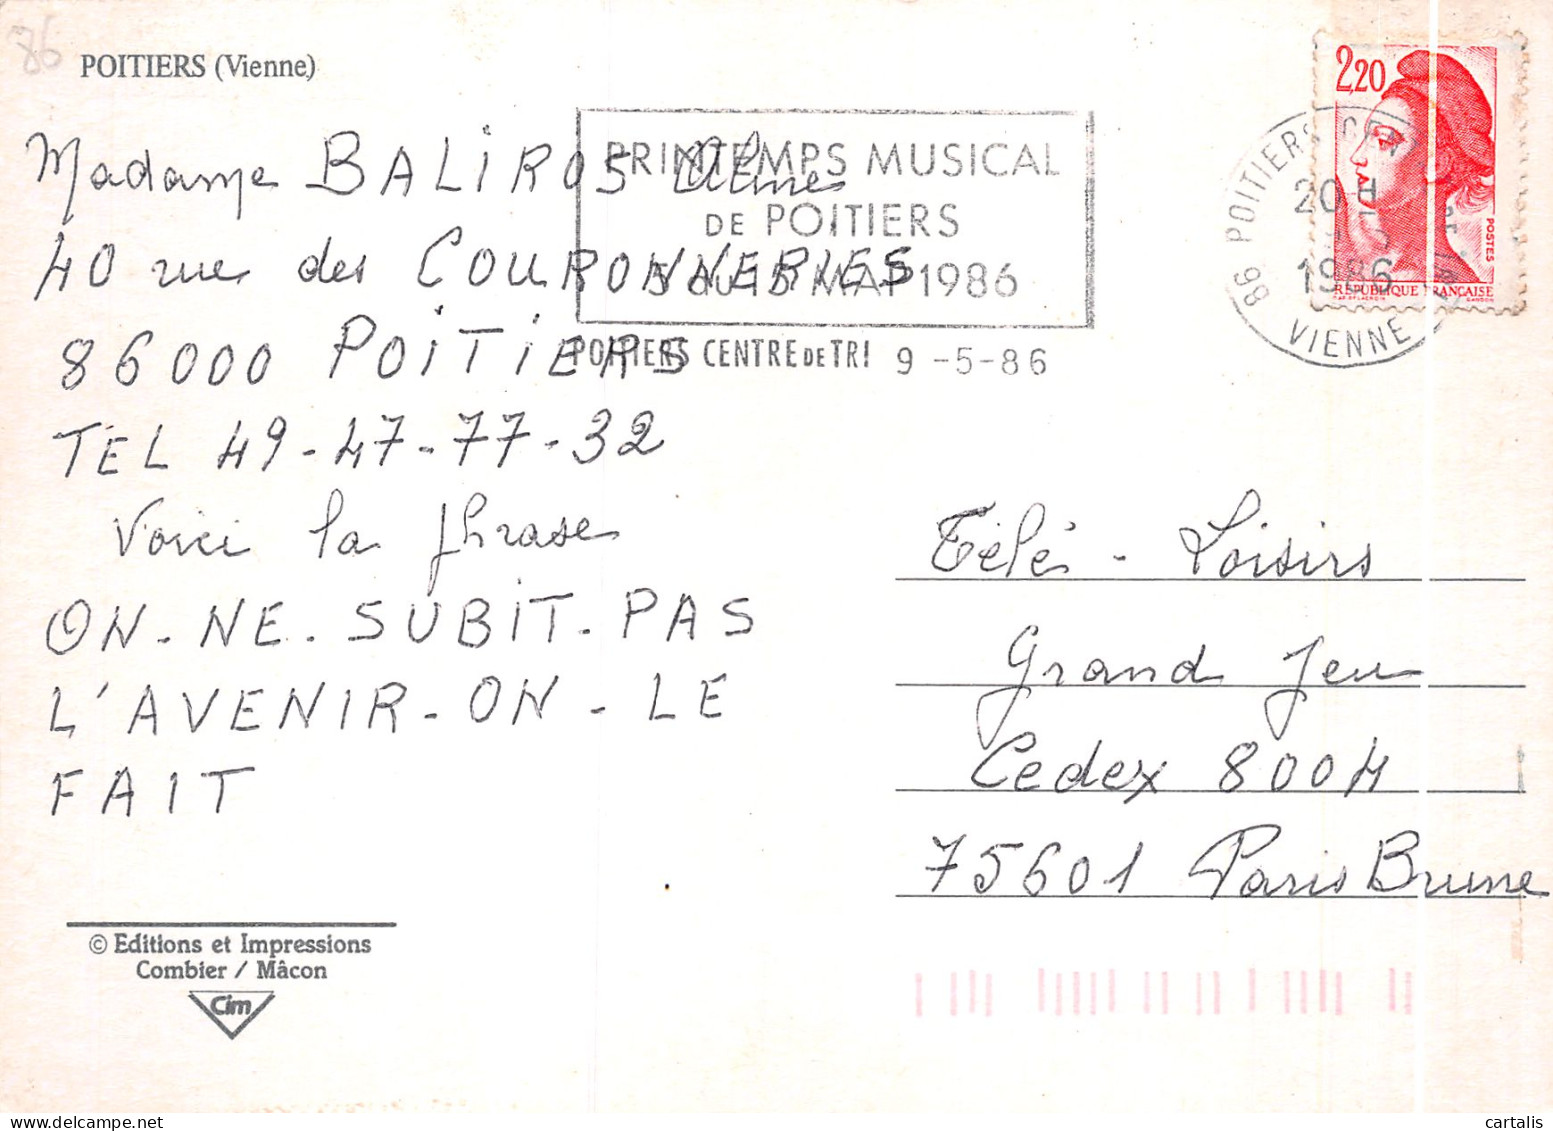 86
POITIERS (Vienne)
2,20
POSTES
RÉPUBLIQUE FRANÇAISE
86 POITIERS
20 H
1986
VIENNE
PRINTEMPS MUSICAL
DE POITIERS
5 au 15 MAI 1986
POITIERS CENTRE DE TRI 9 -5-86
Madame BALIROS
40 rue des COURONNERIES
86000 POITIERS
TEL 49-47-77-32
Voici la phrase
ON-NE-SUBIT-PAS
L'AVENIR-ON-LE
FAIT
Télé-Loisirs
Grand Jeu
Cedex 8004
75601 Paris Brune
© Editions et Impressions
Combier / Mâcon
Cim
cartalis
www.delcampe.net